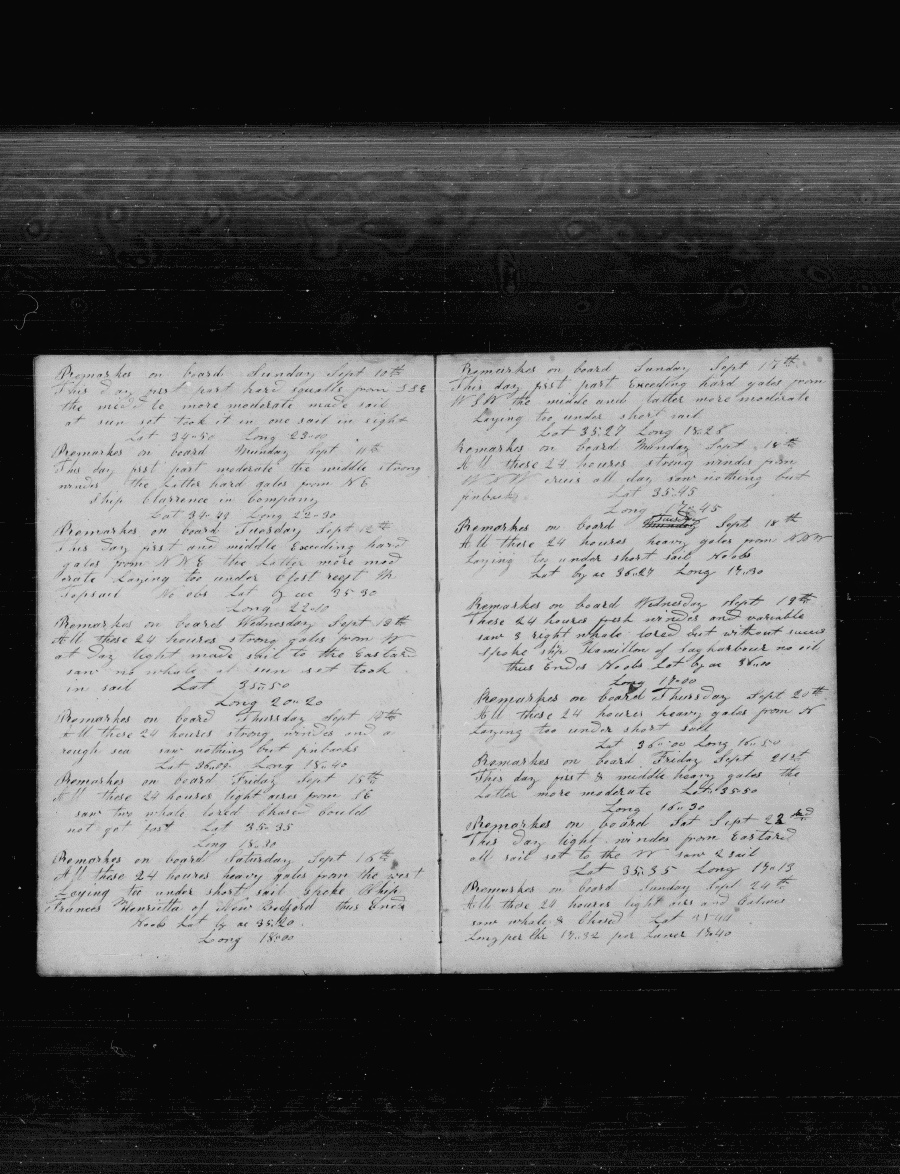 Remarkes on board Sunday Sept 10th
This day first part hard squalls from SSE
the middle more moderate made sail
at sun set took it in one sail in sight
Lat 34-50 Long 23-00
Remarkes on board Munday Sept 11th
This day first part moderate the middle strong
windes the Latter hard gales from NE
Ship Clarrence in Company
Lat 34-49 Long 22-30
Remarkes on board Tuesday Sept 12th
This day first and middle Exceeding hard
gales from NNE the Latter more mod
erate Laying too under Clost reeft M
Topsail No obs Lat by ac 35-30
Long 22-10
Remarkes on board Wednesday Sept 13th
All these 24 houres strong gales from W
at day light made sail to the Eastard
saw no whale at sun set took
in sail Lat 35-50
Long 20-20
Remarkes on board Thursday Sept 14th
All these 24 houres strong windes and a
rough sea saw nothing but finbacks
Lat 36-02 Long 18-40
Remarkes on board Friday Sept 15th
All these 24 houres light aires from
saw two whale lored Chased Could
not get fast Lat 35-35
Long 18-30
Remarkes on board Saturday Sept 16th
All these 24 houres heavy gales from the west
Laying too under short sail Spoke Ship
Frances Henrietta of New Bedford thus Ends
Noob Lat by ac 35-20
Long 18-00
Remarkes on board Sunday Sept 17th
This day first part Exceeding hard gales from
WSW the middle and latter more moderate
Laying too under short sail
Lat 35-27 Long 18-28
Remarkes on board Munday Sept 18th
All these 24 houres strong windes from
WNW cruis all day saw nothing but
finback Lat 35-45
Long 17-45
Remarkes on board Tuesday Sept 18th
All these 24 houres heavy gales from NNW
Laying too under short sail Noobs
Lat by ac 36-27 Long 17-30
Remarkes on board Wednesday Sept 19th
These 24 houres fresh windes and variable
saw 3 right whale lored but without sucses
Spoke ship Hamilton of Sagharbour no oil
thus Endes Noobs Lat by ac 36-00
Long 17-00
Remarkes on board Thursday Sept 20th
All these 24 houres heavy gales from N
Laying too under short sail
Lat 36-00 Long 16-50
Remarkes on board Friday Sept 21st
This day first & middle heavy gales the
Latter more moderate Lat 35-50
Long 16-30
Remarkes on board Sat Sept 22nd
This day light windes from Eastard
all sail set to the W saw 2 sail
Lat 35-35 Long 17-13
Remarkes on board Sunday Sept 24th
All these 24 houres light airs and Calmes
saw whale & Chased Lat 35-44
Long per Chr 17-32 per Luner 17-40